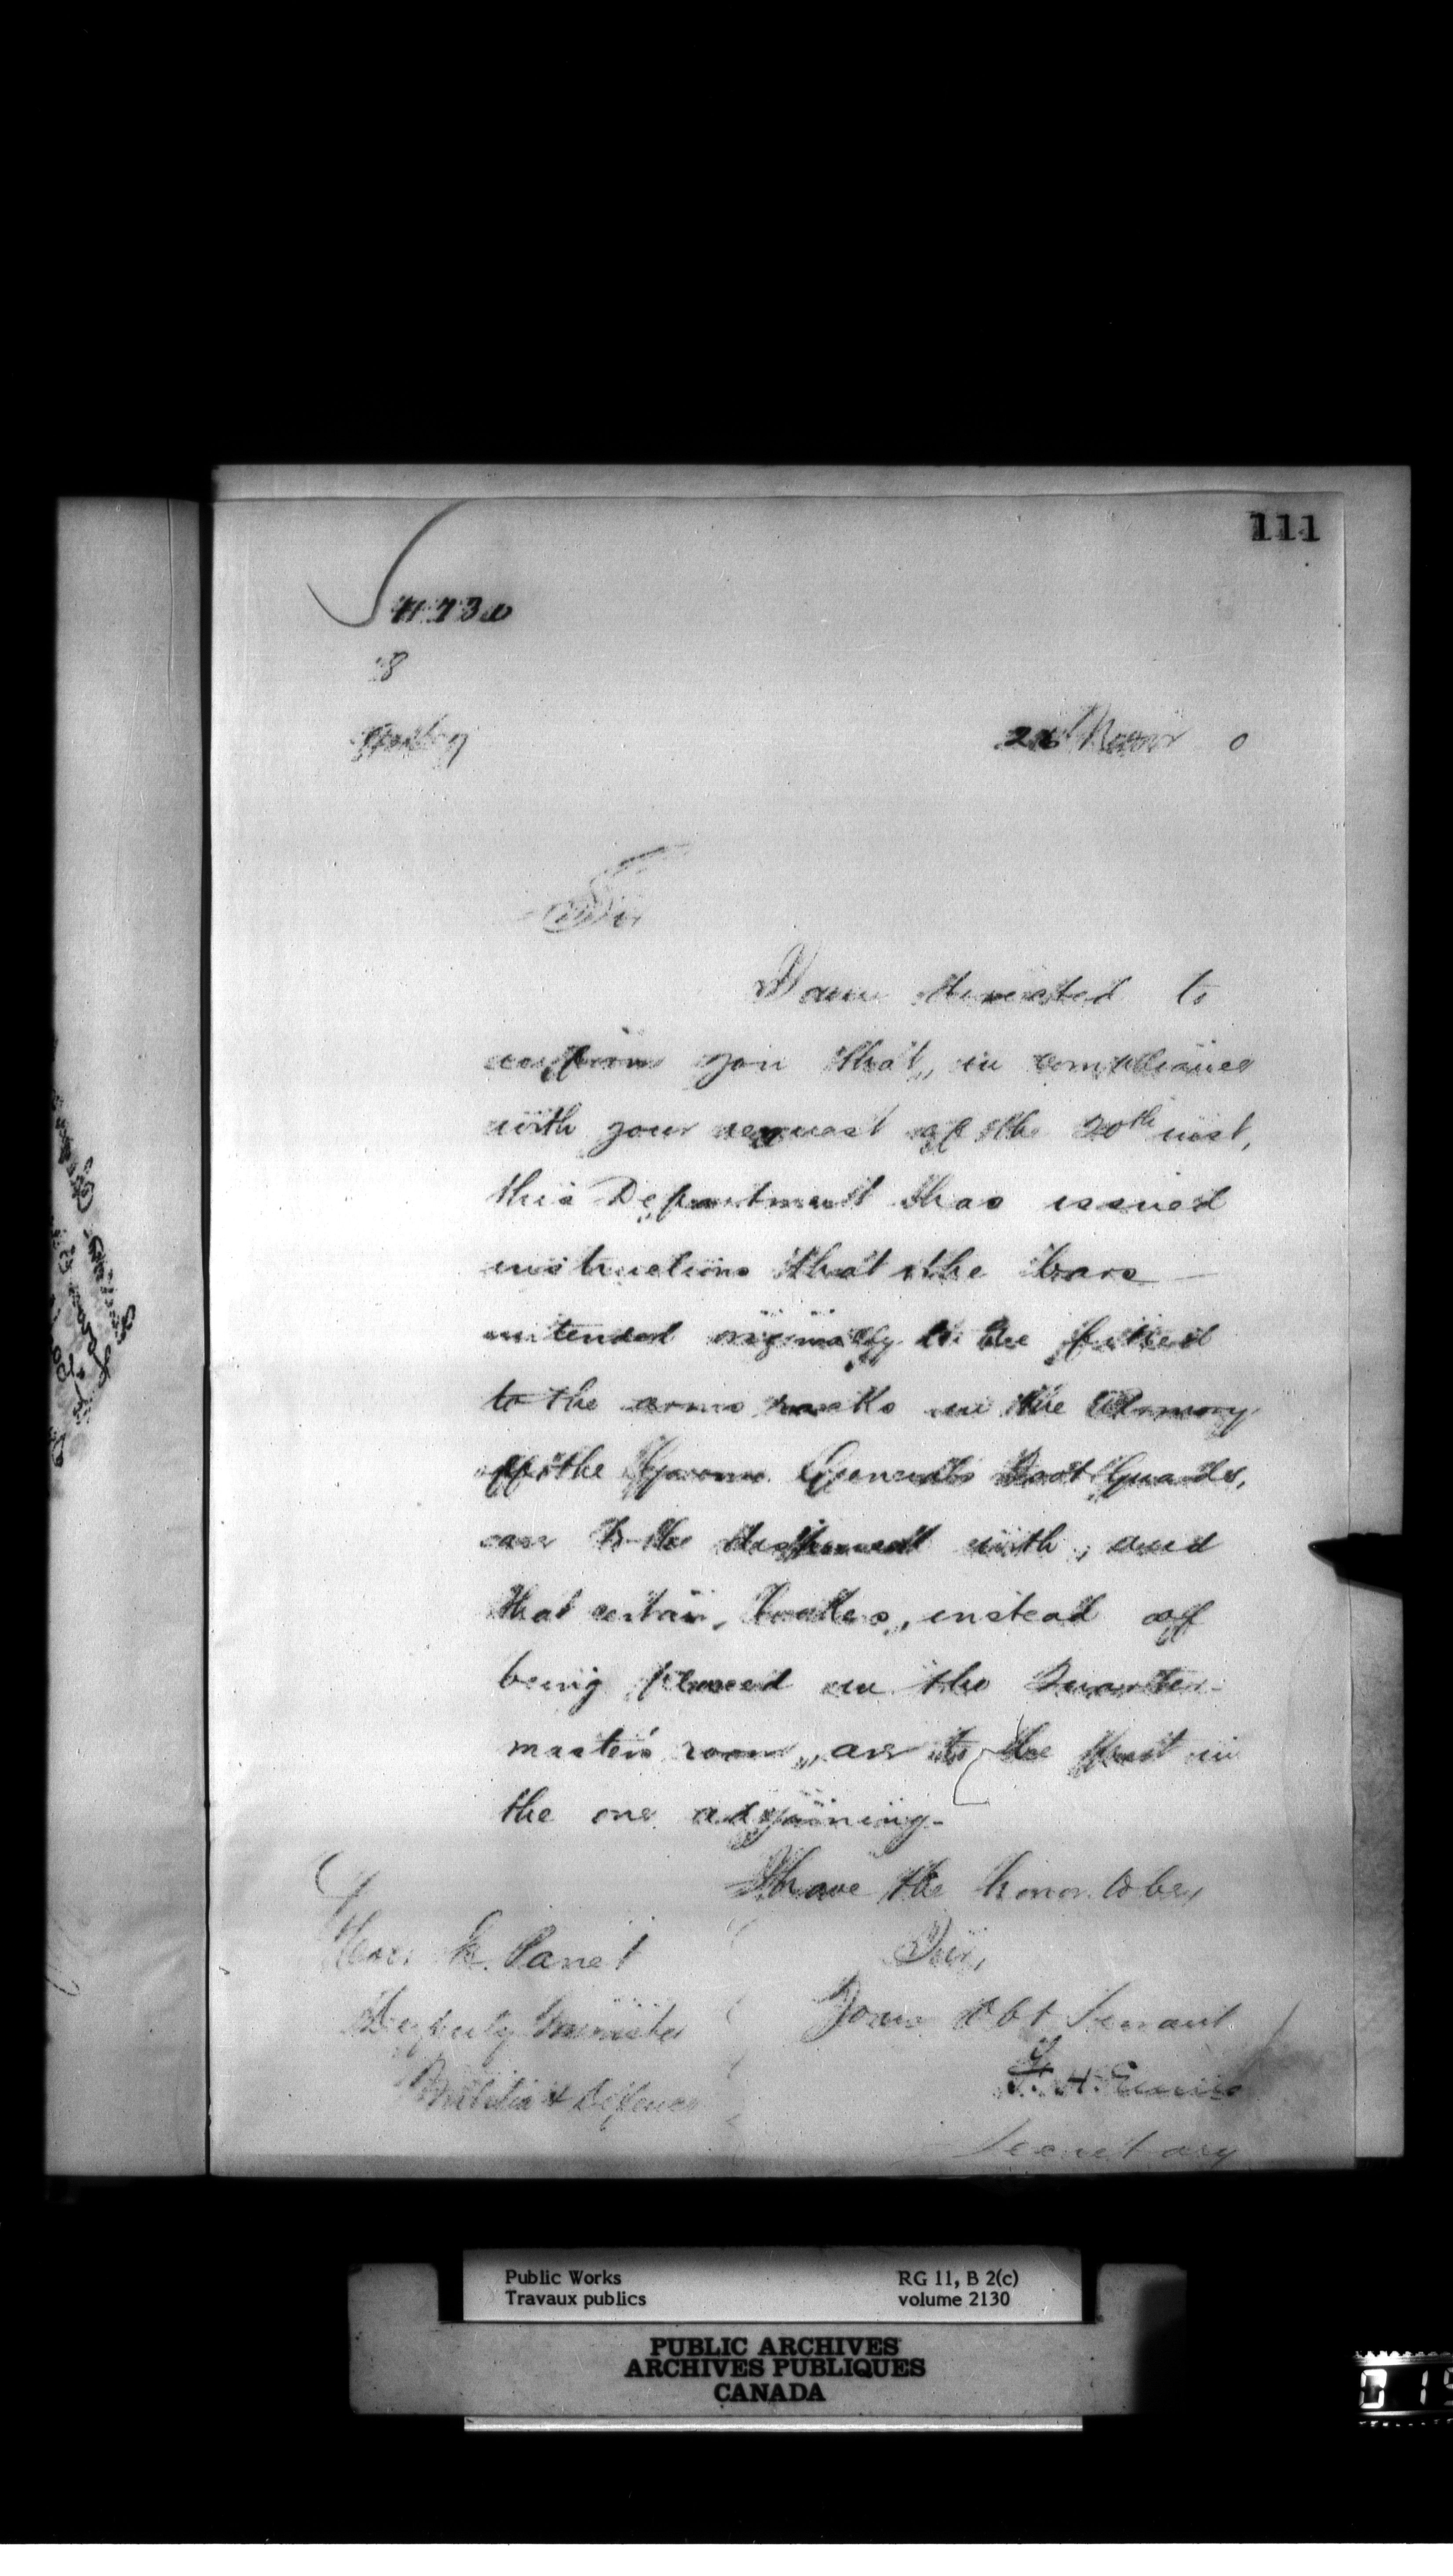 111
8
Sir
I am directed to
inform you that, in compliance
with your request of the 20th inst,
this Department has issued
instructions that the bars
intended originally to be fitted
to the arms racks in the Armory
of the Governor Generals Foot Guards,
are to be dispensed with, and
that certain, instead of
being placed in the Quarter-
master's room, are to be put in
the one adjoining.
I have the honor to be,
Sir,
Panet
Your Obt Servant
Deputy Minister
Militia & Defence
Secretary
Public Works
Travaux publics
RG 11, B 2(c)
volume 2130
PUBLIC ARCHIVES
ARCHIVES PUBLIQUES
CANADA